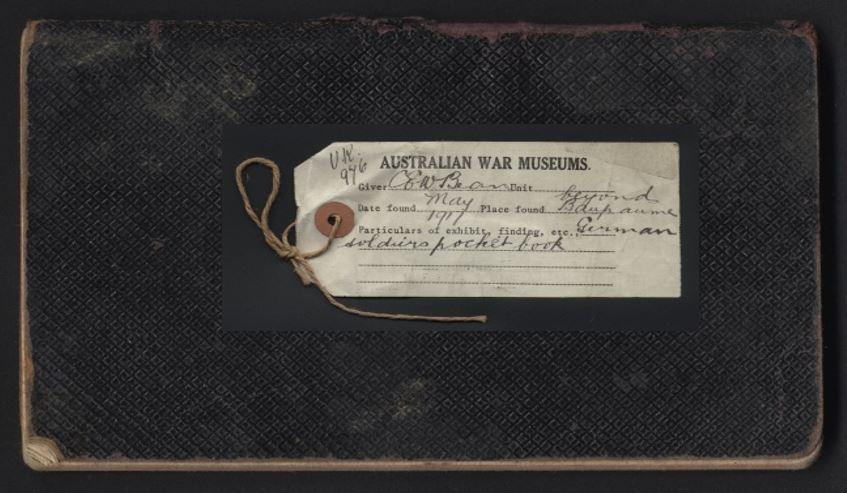 UK.
946
AUSTRALIAN WAR MUSEUMS.
Giver C E W Bean Unit
Date found May 1917 Place found beyond Bapaume
Particulars of exhibit, finding, etc., German
soldiers pocket book